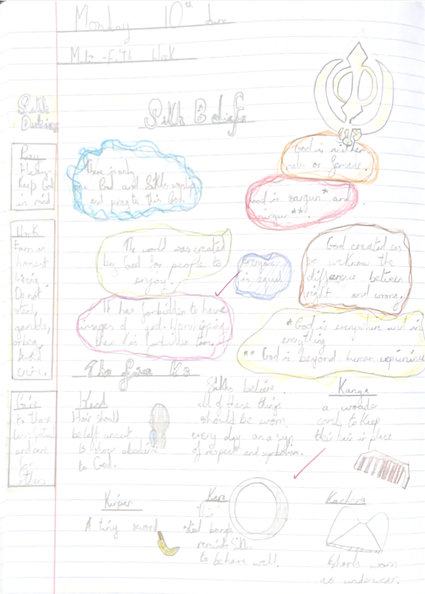 Monday 10th June
Sikh
Duties
Sikh Beliefs
Pray
Keep God
in mind
Work
honest
living.
Do not
steal,
gamble,
Give
to
and care
for
others
There is only
God and Sikhs
and this God
God is neither
male or female.
God is sargun* and
**
The world was created
by God for people to
enjoy.
everyone
is equal
God created us
to know the
difference between
right and wrong.
It has forbidden to have
images of God. Worshipping
them is forbidden too.
*God is everywhere and in
everything
** God is beyond human experience
The five Ks
Hair should
be left uncut
to show obedience
to God.
Sikhs believe
all of these things
should be worn
every day as a sign
of respect and
Kanga
a wooden
comb to keep
the hair in place
Kirpan
A tiny sword
Kara
steel bangle
reminds Sikhs
to behave well.
Kachera
Shorts worn
as underwear.